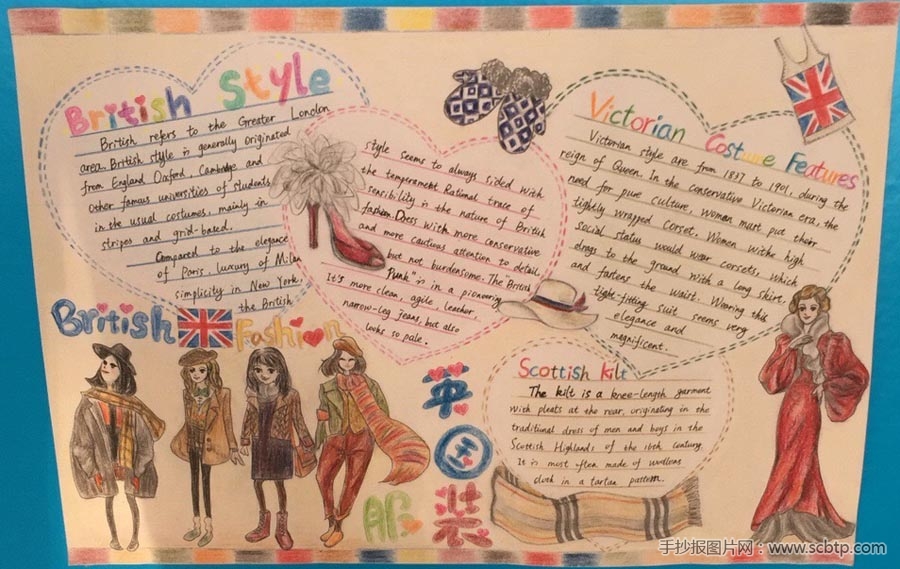 British Style
British refers to the Greater London
area. British style is generally originated
from England Oxford Cambridge and
other famous universities of students
in the usual costumes, mainly in
stripes and grid-based.
Compared to the elegance
of Paris, luxury of Milan
simplicity in New York,
the British
style seems to always sided with
the temperament Rational trace of
sensibility in the nature of British
fashion. Dress with more conservative
and more cautious attention to detail,
but not burdensome. The British
Punk" is in a pioneering
It's more clean, agile, leather
narrow-leg jeans, but also
looks so pale.
Victorian Costume Features
Victorian style are from 1837 to 1901, during the
reign of Queen. In the conservative Victorian era, the
need for pure culture, women must put their
tightly wrapped corset. Women withe high
social status would wear corsets, which
drags to the ground with a long skirt.
and fastens the waist. Wearing this
tight-fitting suit seems very
elegance and
magnificent.
British Fashion
Scottish kilt
The kilt is a knee-length garment
with pleats at the rear, originating in the
traditional dress of men and boys in the
Scottish Highlands of the 16th century.
It is most often made of woollens
cloth in a tartan pattern.
英国
服装
手抄报图片网：www.scbtp.com